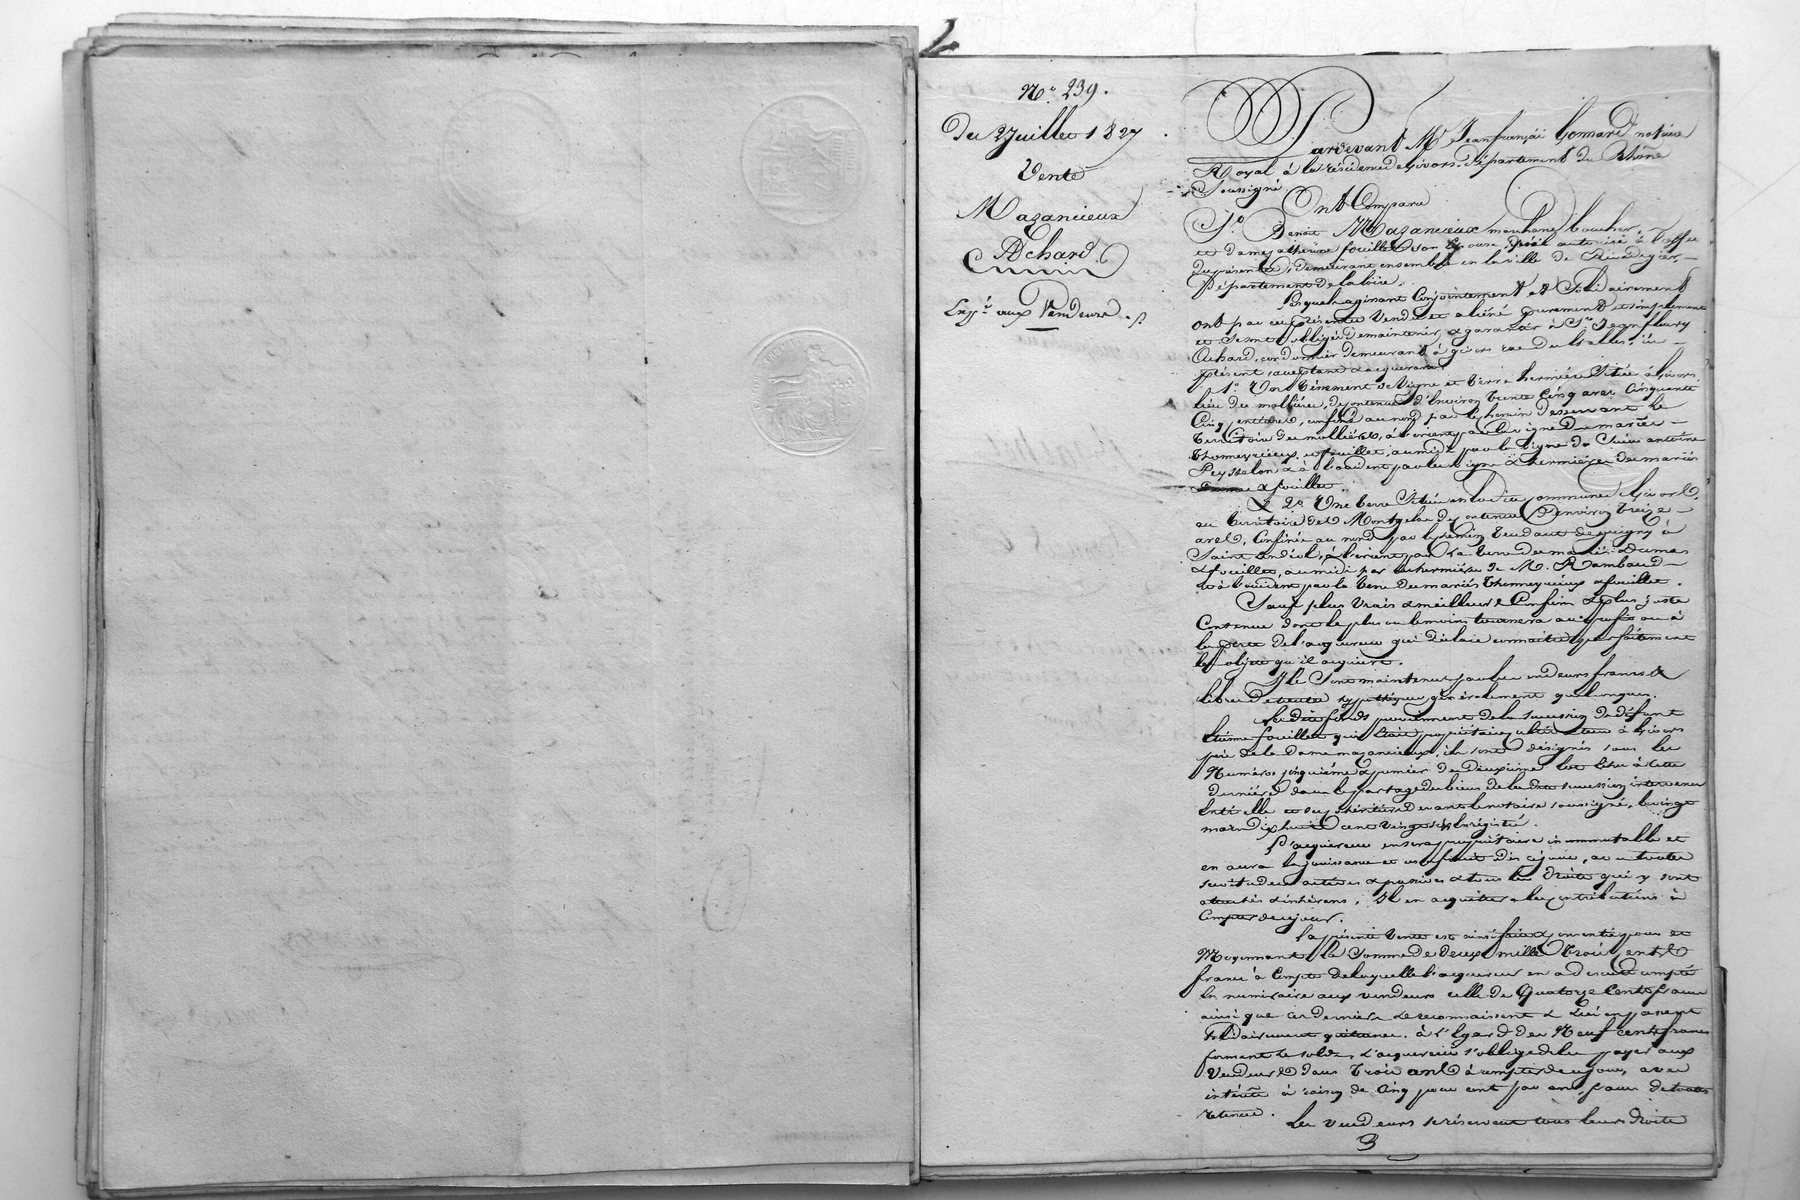 N.° 239.
Du 2 Juillet 1827
Vente
Mazancieux
Achard
Exp.on aux Vendeurs
Pardevant M.e Jean françois Bonnard notaire
Royal à la résidence de Givors, département du Rhône
Soussigné
Ont Comparu
S.r Benoit Mazancieux marchand boucher,
et dame catherine fouillet son Epouse, qu'il autorise à l'effet
des présentes, demeurant ensemble en la ville de Rive de gier,
Département de la loire.
Lesquels agissant Conjointement et Solidairement
ont par ces présentes Vendu et aliéné purement et simplement
et se sont obligés de maintenir & garantir à S.r Jean fleury
Achard, cordonnier demeurant à givors rue des halles, ici
présent, acceptant & acquereur
1.° Un tènement de Vigne et terre hermée Située à Givors
lieu des mollières, de contenue d'Environ trente cinq ares Cinquante
Cinq centiares, confiné au nord par le chemin desservant le
territoire des mollières, à l'orient par la vigne des mariés
thomeyrieux et fouillet, au midi par la vigne de Sieur antoine
Peyssellon & à l'occident par les vigne & hermiére des mariés
Dumas & fouillet.
& 2.° Une terre Située en ladite commune de Givors,
au territoire de Montgelas de contenue d'environ treize
ares, Confinée au nord par le chemin tendant de grigny à
Saint andéol, à l'orient par la terre des mariés Dumas
& fouillet, au midi par la hermière de M. Rambaud
& à l'occident par la terre des mariés thomeyrieux & fouillet.
Sauf plus vrais & meilleurs Confins & plus juste
Contenue dont le plus ou le moins tournera au profit ou à
la perte de l'acquereur qui déclare connaitre parfaitement
les objets qu'il acquiert.
Ils Sont maintenus par les vendeurs francs &
libres de toutes hypothèques généralement quelconques.
Lesdits fonds proviennent de la succession de défunt
Etienne fouillet qui était propriétaire cultivateur à Givors
père de la dame mazancieux, ils sont désignés sous les
Numéros cinquième & premier du Deuxième lot échu à cette
dernière dans le partage des biens de ladite succession intervenu
Entr'elle et ses cohéritiers devant le notaire soussigné, le vingt
mars dix huit cent vingt six, Enrégistré.
L'acquereur en sera propriétaire incommutable et
en aura la jouissance et usufruit dès ce jour, avec toutes
servitudes actives & passives & tous les droits qui y sont
attachés & inhérens, Il en acquittera les contributions à
Compter de ce jour.
La présente Vente est ainsi faite & consentie pour et
Moyennant la Somme de deux mille trois cents
francs à Compte de laquelle l'acquereur en a de suite compté
En numéraire aux vendeurs celle de Quatorze Cents francs
ainsi que ces derniers le reconnaissent & lui en passent
Solidairement quittance. à l'Egard des Neuf cents francs
formant le solde, l'acquereur s'oblige de les payer aux
Vendeurs dans trois ans à compter de ce jour, avec
intérêts à raison de Cinq pour cent par an, sans de toutes
retenue.
Les Vendeurs se réservent tous leurs droits
3